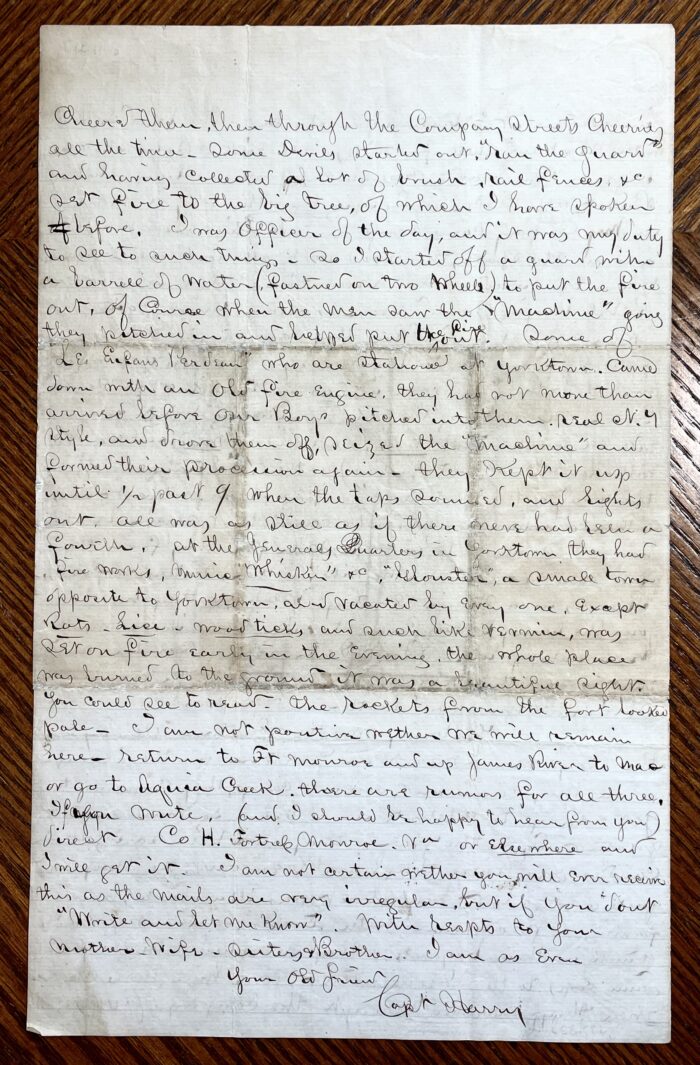 Cheered them, then through the Company Streets Cheering
all the time - Some Devils started out, "ran the guard"
and having collected a lot of brush, rail fences, &c.
set fire to the big tree, of which I have spoken
before. I was Officer of the day, and it was my duty
to see to such things - so I started off a guard with
a barrell of water (fastned on two wheels) to put the fire
out, of Course when the men saw the "Machine" going
they pitched in and helped put the fire out. Some of
"Les Enfans Perdeau" who are stationed at Yorktown. Came
down with an Old fire Engine, they had not more than
arrived before our Boys pitched into them. real N. Y
style, and drove them off, seized the "Machine" and
formed their procession again - they Kept it up
until ½ past 9 when the taps sounded, and lights
out. all was as still as if there never had been a
fourth. at the Generals Quarters in Yorktown they had
fire works, music "Whiskey" &c, "Gloucster", a small town
opposite to Yorktown, and vacated by Every one, Except
Rats - Lice - wood ticks and such like vermin, was
set on fire early in the Evening, the whole place
was burned to the ground it was a beautiful sight.
You could see to read - the rockets from the fort looked
pale - I am not positive wether we will remain
here - return to Ft Monroe and up James River to Mac
or go to Aquia Creek. there are rumors for all three,
If you write, (and I should be happy to hear from you)
direct Co H. Fortress Monroe. Va or Elsewhere and
I will get it. I am not certain wether you will ever receive
this as the mails are very irregular, but if you dont
"Write and let me Know". With respts to your
Mother - Wife - Sisters & Brother. I am as Ever
Your Old friend
Capt Harry